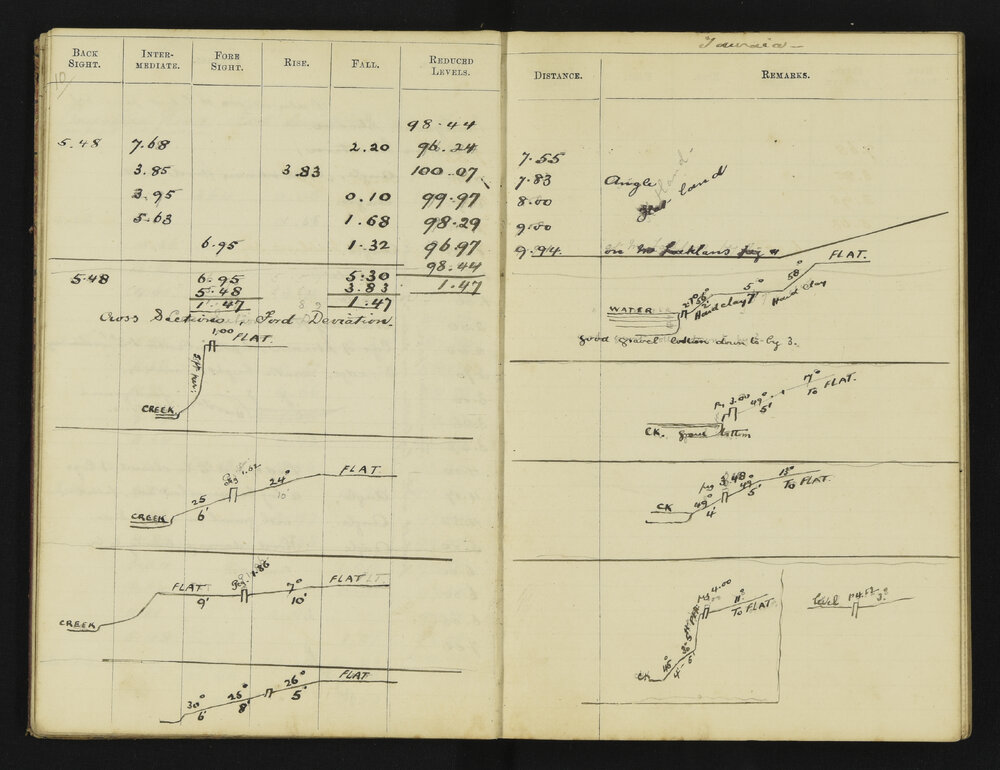 BACK SIGHT. INTER-MEDIATE. FORE SIGHT. RISE. FALL. REDUCED LEVELS.
10
98.44
5.48 7.68 2.20 96.24
3.85 3.83 100.07
3.95 0.10 99.97
5.63 1.68 98.29
6.95 1.32 96.97
98.44
5.48 6.95 5.30 1.47
5.48 3.83
1.47 1.47
Cross Sections, Ford Deviation.
1,00 FLAT.
CREEK
Peg 1.02 24° FLAT
25 10'
CREEK 6'
Peg 1.86
FLAT 7° FLAT
9' 10'
CREEK
FLAT
30° 26° 26°
6' 8' 5'
DISTANCE. REMARKS.
7.55
7.83 Angle land
8.00
9.00
9.94 on
FLAT.
58°
5°
WATER Hard clay Hard Clay
good gravel bottom down to by 3.
7°
Peg 3.00 49° TO FLAT.
5'
CK. gravel bottom
Peg 3.48 13°
49° 49° TO FLAT.
CK 4' 5'
Peg 4.00 11°
TO FLAT
45°
CK 4' 6'
level 4.52 3°